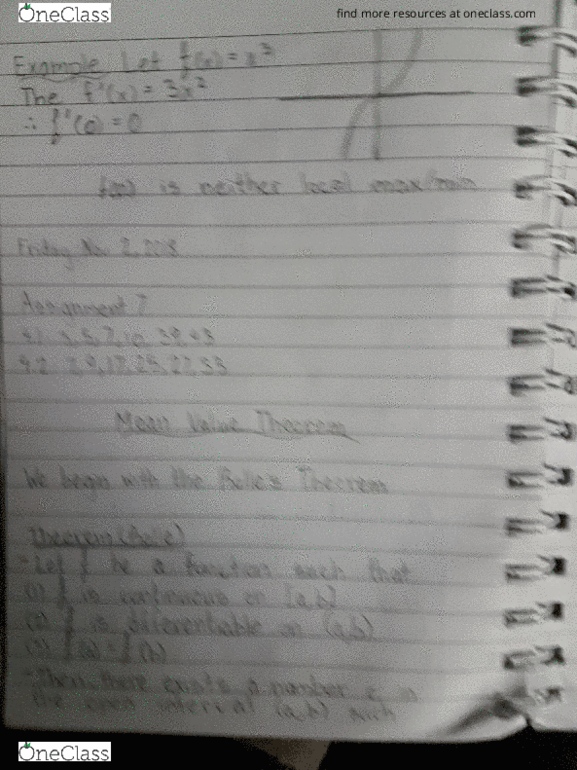 OneClass
find more resources at oneclass.com
Example Let f(x) = x³
The f'(x) = 3x²
∴ f'(0) = 0
f(0) is neither local max/min
Friday Nov 2, 2018
Assignment 7
4.1 3, 5, 7, 10, 39, 43
4.2 2, 9, 17, 25, 27, 33
Mean Value Theorem
We begin with the Rolle's Theorem
Theorem (Rolle)
- Let f be a function such that
(1) f is continuous on [a,b]
(2) f is differentiable on (a,b)
(3) f(a) = f(b)
- Then there exists a number c in
the open interval (a,b) such
OneClass